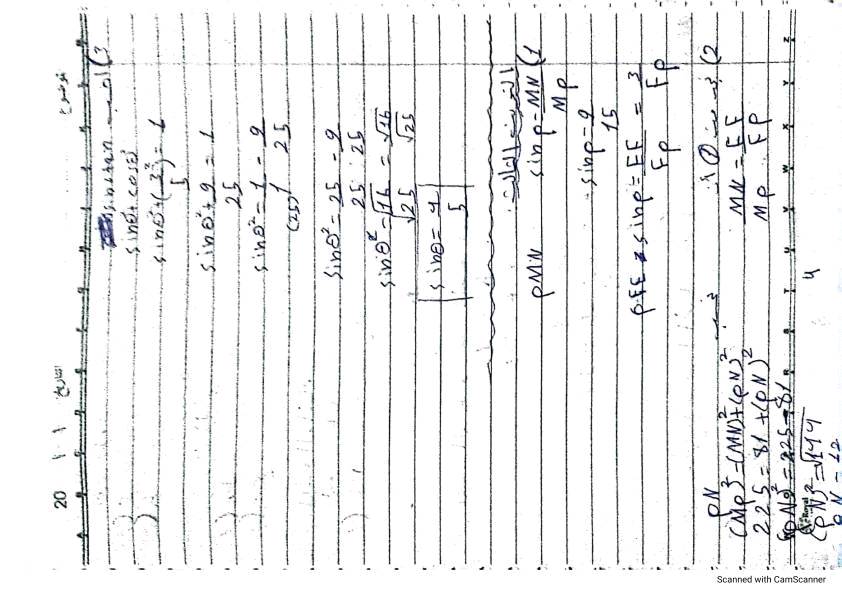 20 ١ ١ التاريخ
الموضوع
3) احسب sin و tan
sinθ² + cosθ²
sinθ² + (3/5)² = 1
sinθ² + 9/25 = 1
sinθ² = 1/1 - 9/25
(25)
sinθ² = 25/25 - 9/25
sinθ² = √16/√25 = √16/√25
sinθ = 4/5
التمرين الثالث
1) sin p = MN/Mp
pMN
sin p = 9/15
pEF sin p = EF/Fp = 3/Fp
2)
MN/Mp = EF/Fp
pN
(Mp)² = (MN)² + (pN)²
225 = 81 + (pN)²
(pN)² = 225 - 81
(pN)² = √144
pN = 12
Scanned with CamScanner